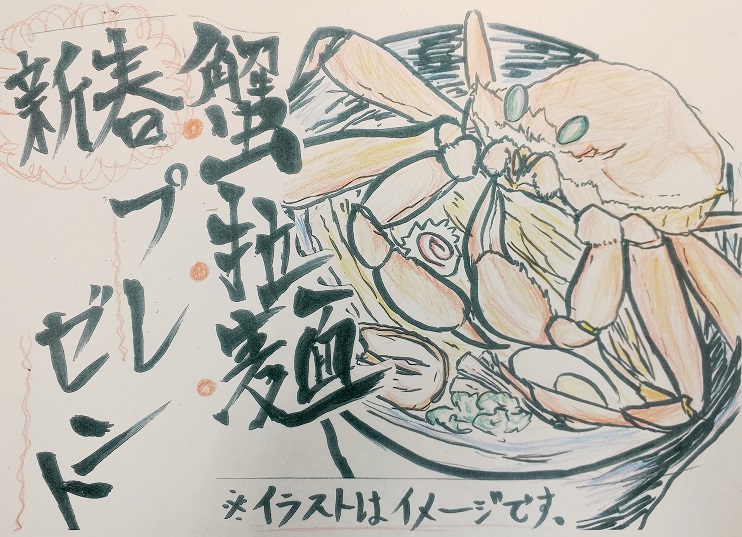 新春
蟹拉麺
プレ
ゼント
※イラストはイメージです。